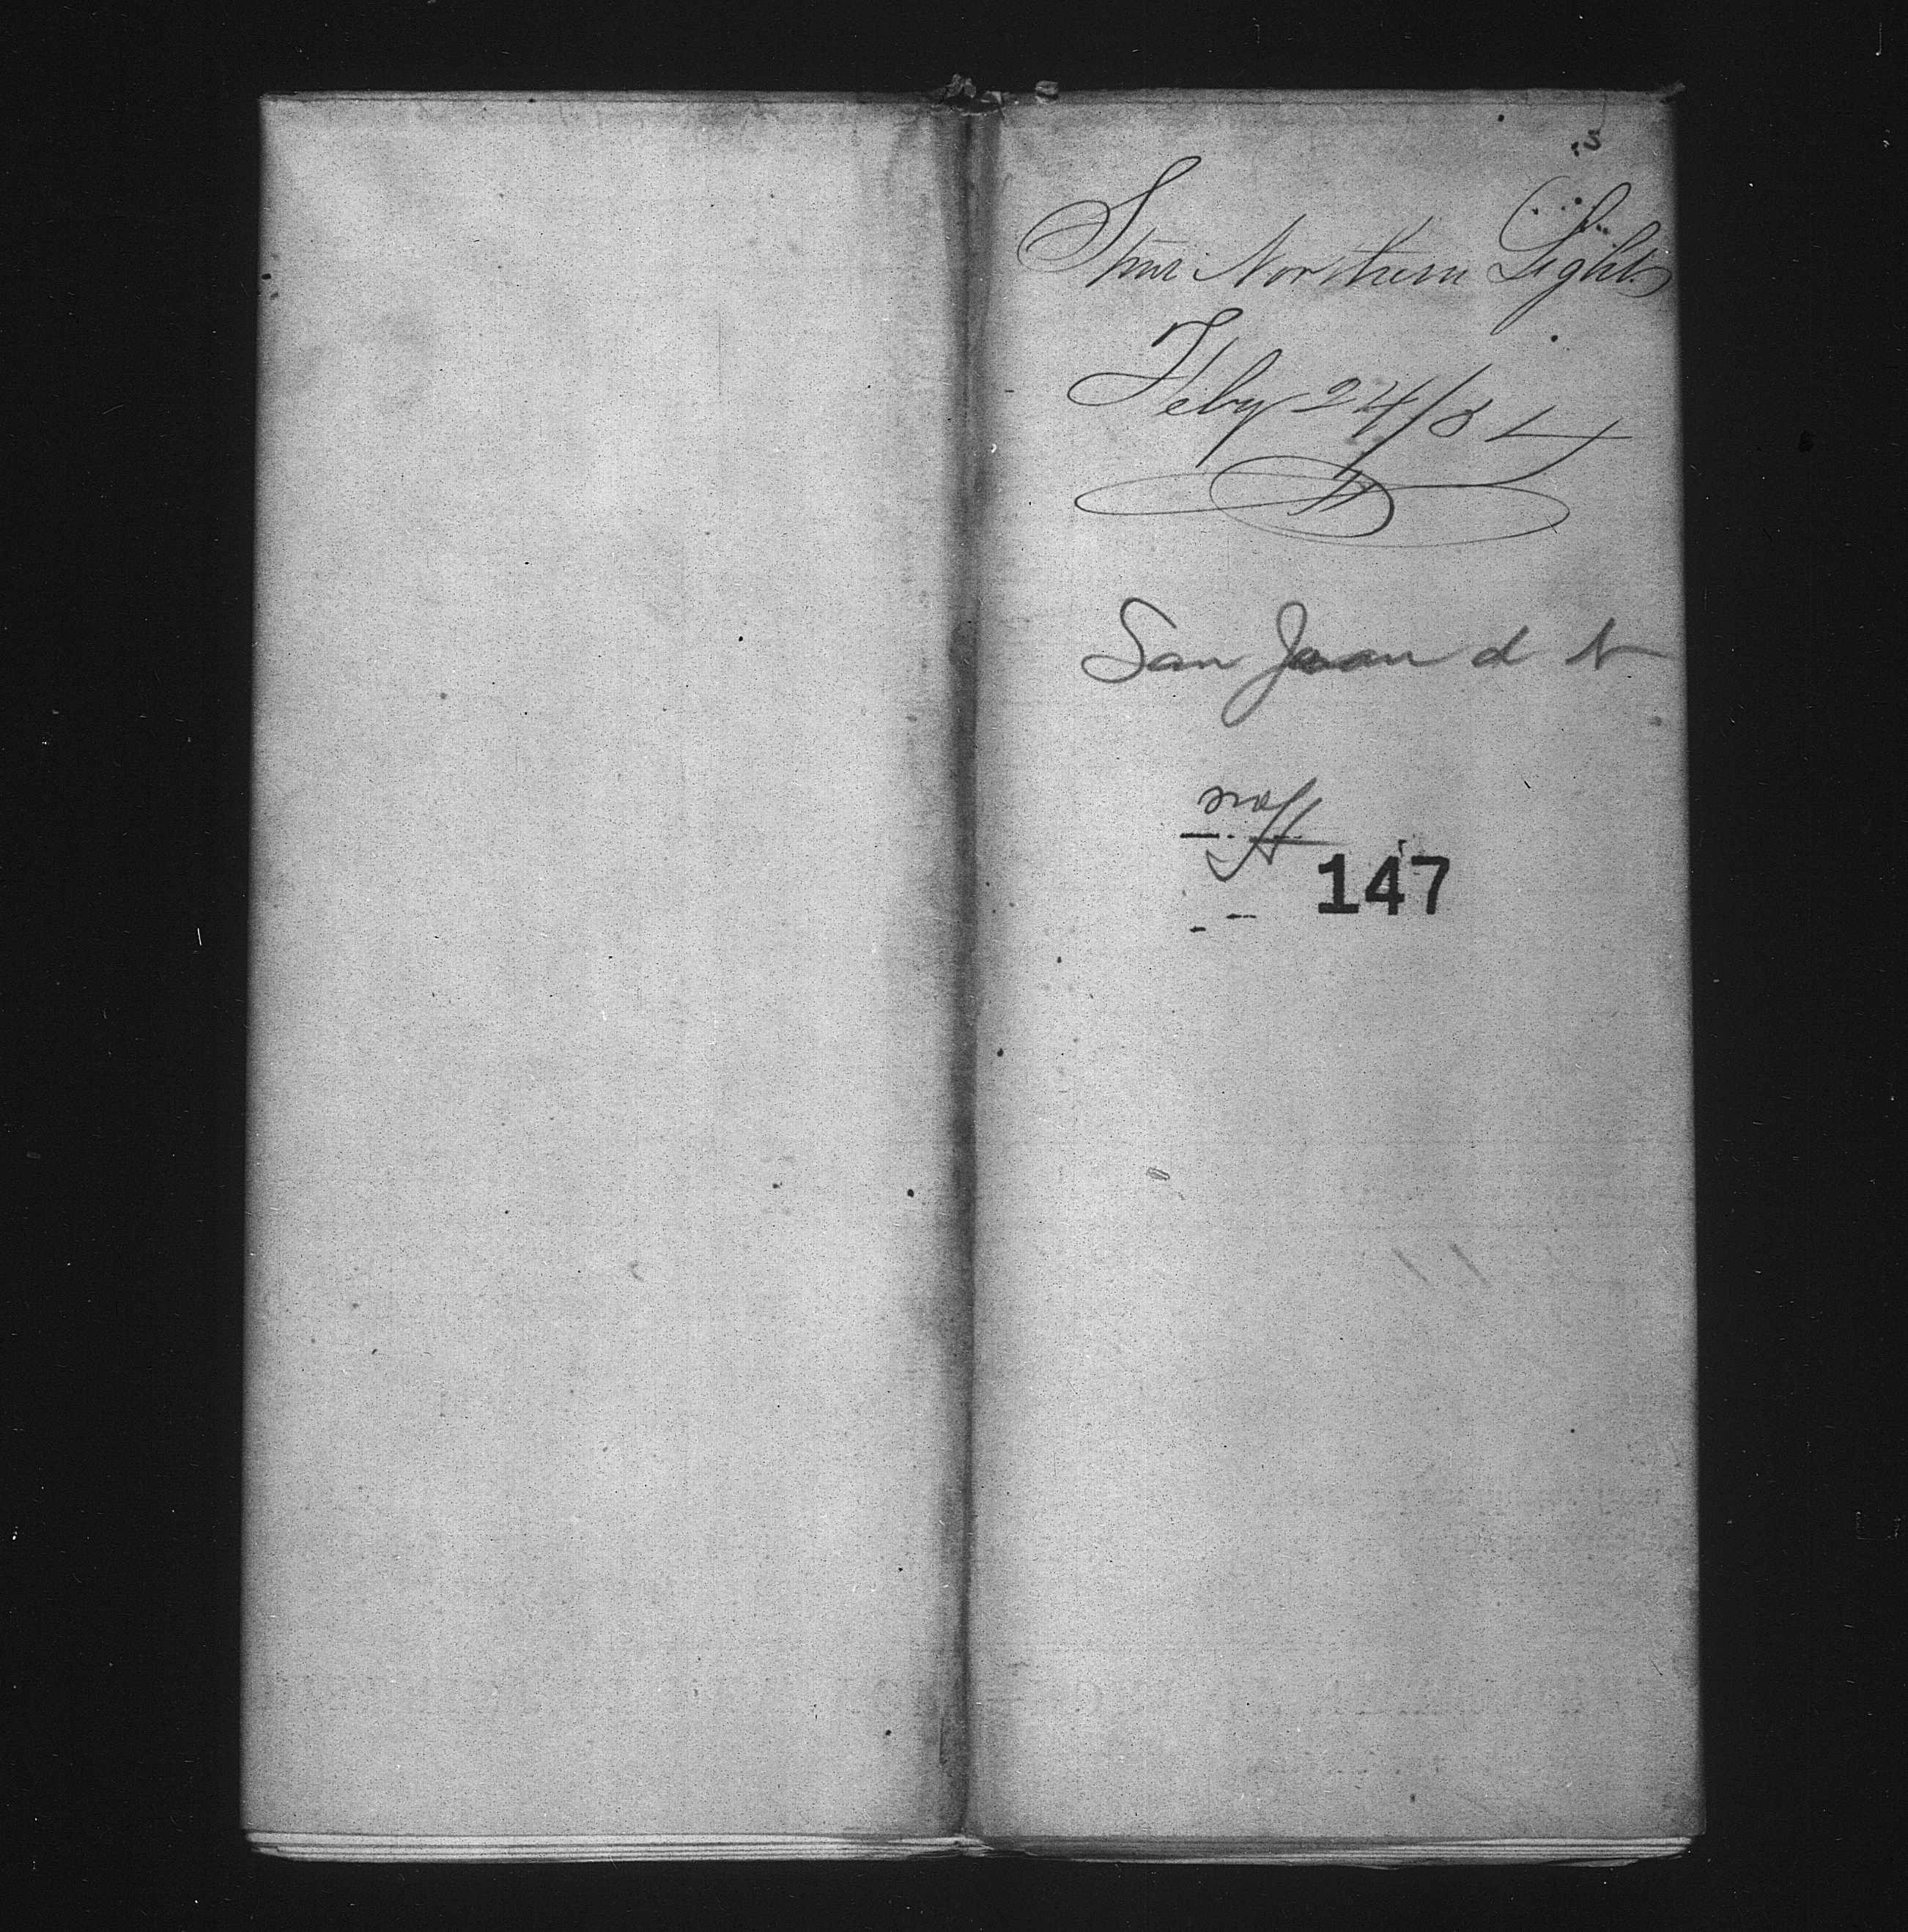 Stmr Northern Light
Feby 24/54
San Juan d N
147